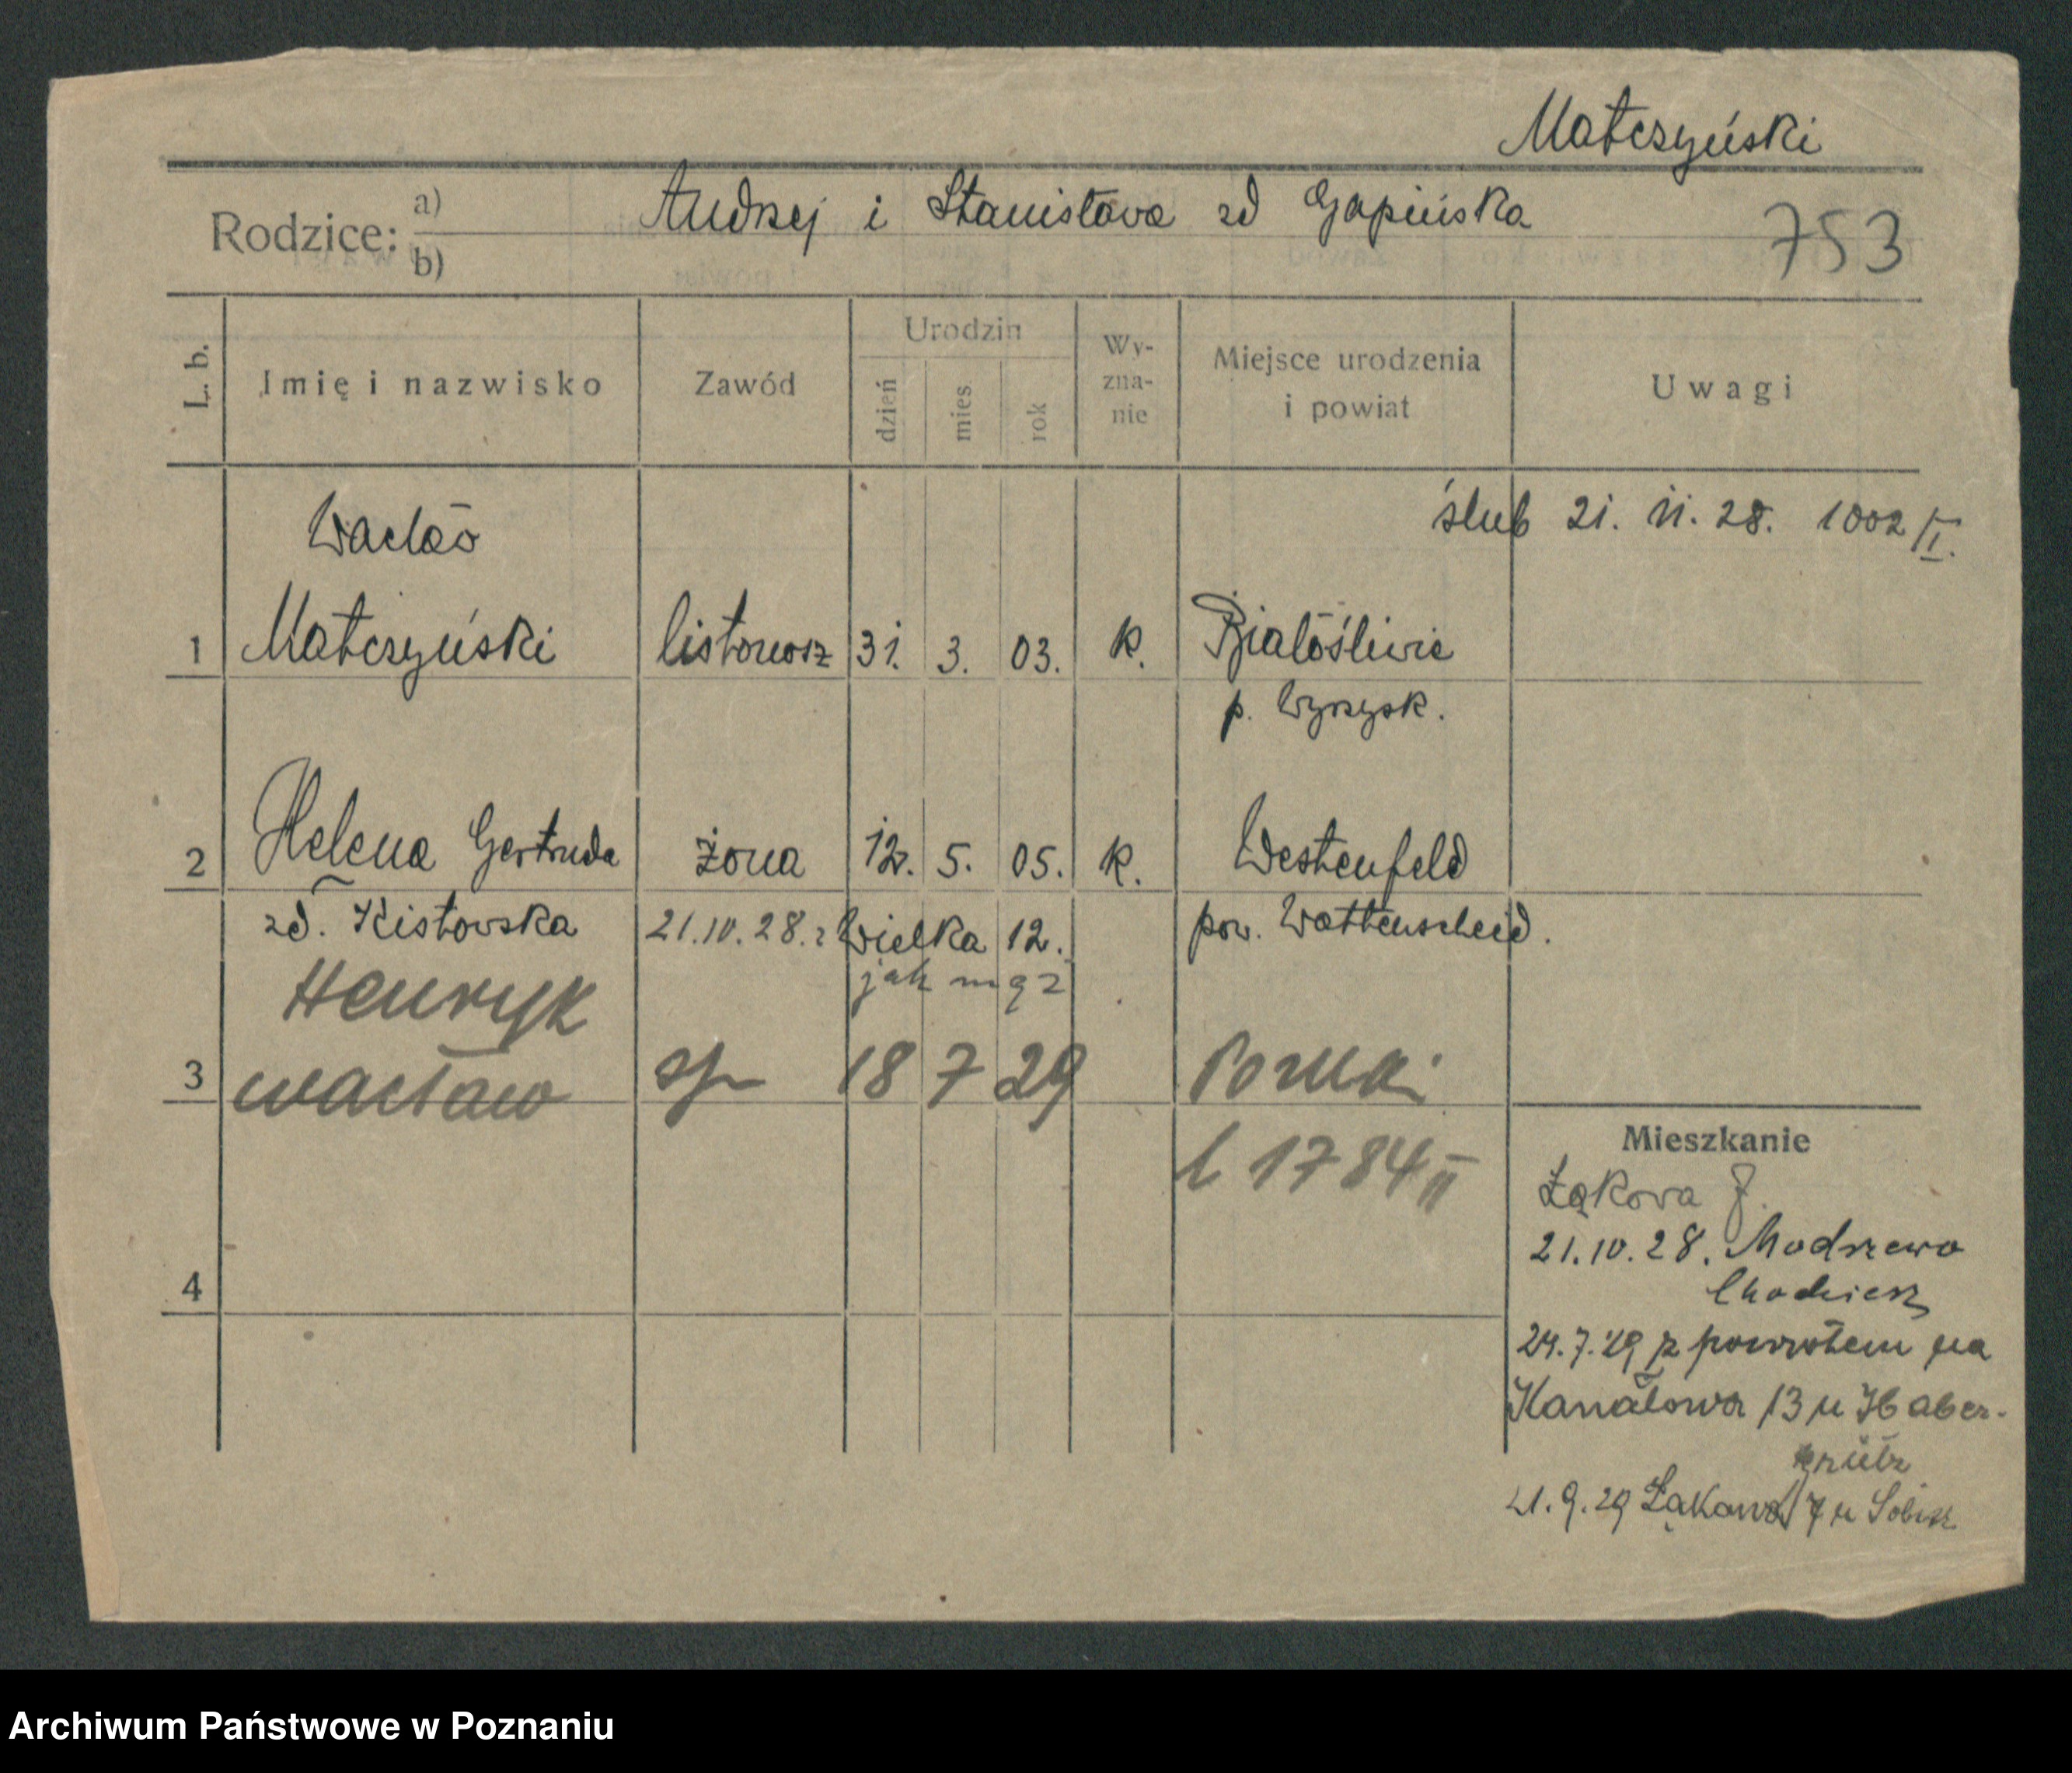 Matczyński
Rodzice: a) b) Andrzej i Stanisława zd Gapińska
753
L. b. Imię i nazwisko Zawód Urodzin dzień mies rok Wy-zna-nie Miejsce urodzenia i powiat Uwagi
ślub 21. 11. 28. 1002/I.
Wacław
1 Matczyński listonosz 31. 3. 03. k. Białośliwie
p. Wyrzysk.
2 Helena Gertruda żona 12. 5. 05. k. Westenfeld
zd. Kistowska 21.10.28. z Wielka 12. pow. Wattenscheid.
jak mąż
Henryk
3 Wacław 18 7 29 Poznań
Mieszkanie
l 1784 II
Łąkowa 7.
21.10.28. Modrzewo
Chodzież
4
24.7.29 z powrotem na
Kanałowa 13 u Haber-
21.9.29 Łąkowa 7 u
Archiwum Państwowe w Poznaniu